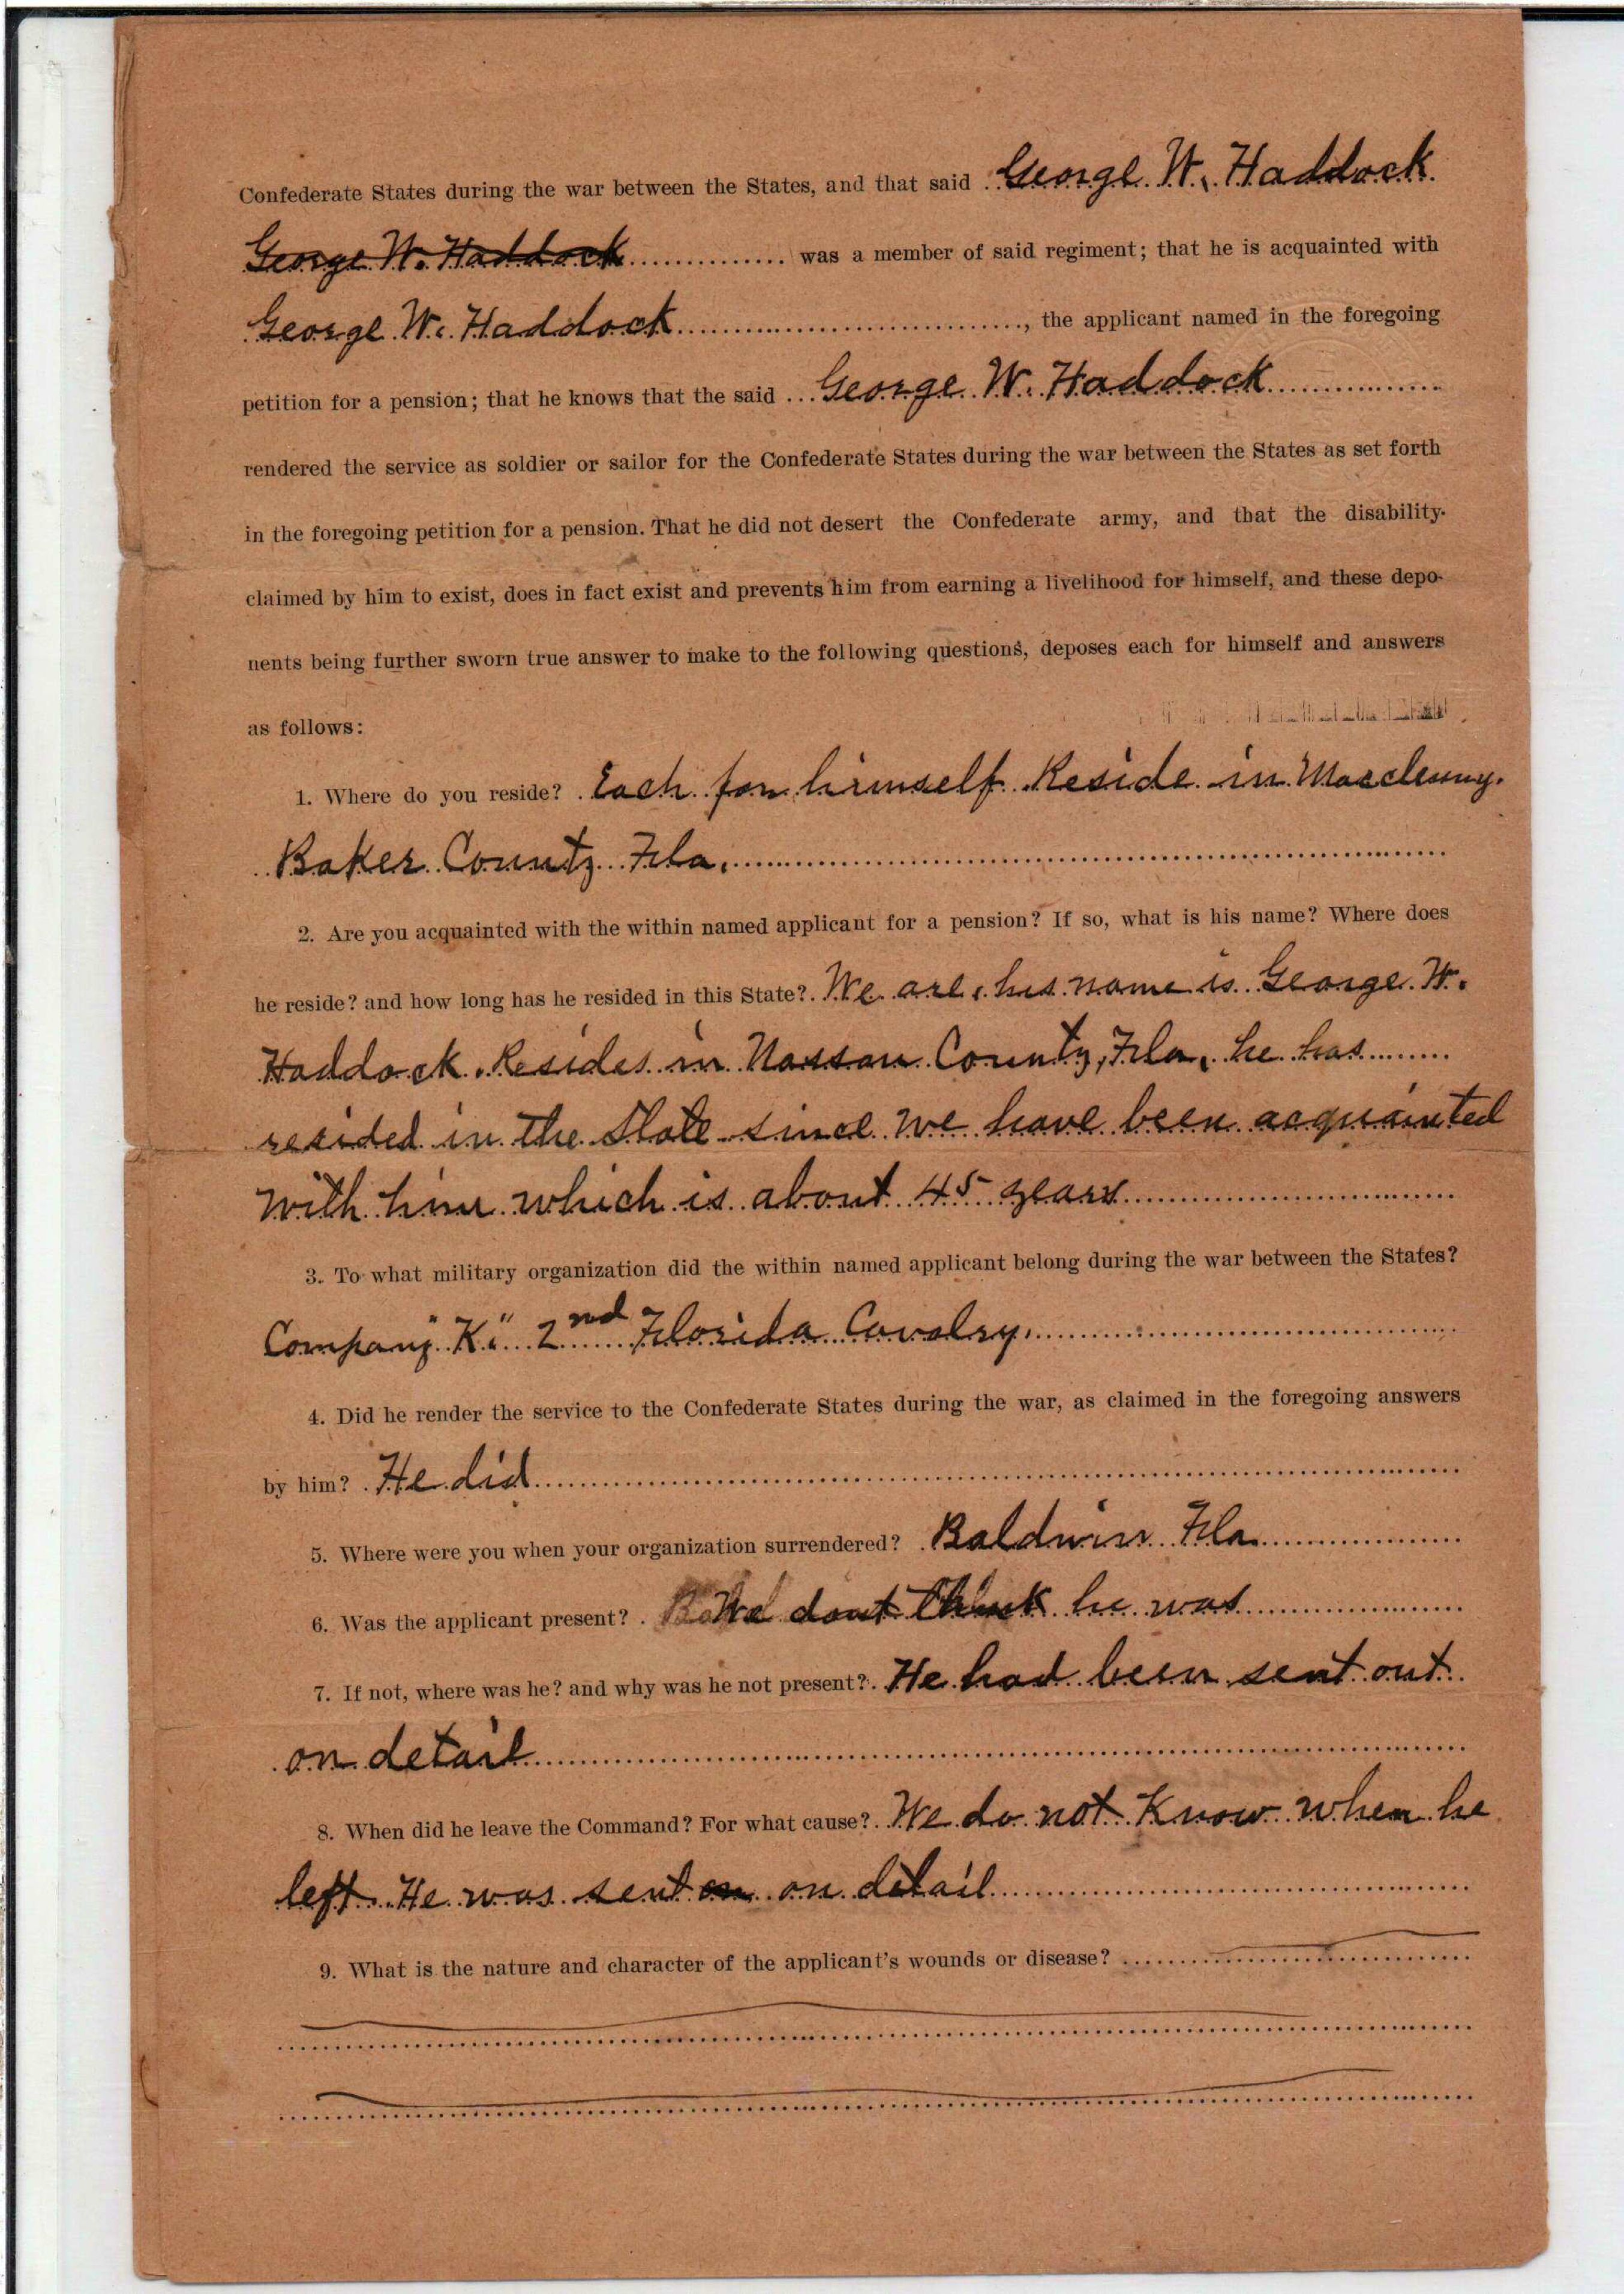 Confederate States during the war between the States, and that said George W. Haddock
George W. Haddock was a member of said regiment; that he is acquainted with
George W. Haddock, the applicant named in the foregoing
petition for a pension; that he knows that the said George W. Haddock
rendered the service as soldier or sailor for the Confederate States during the war between the States as set forth
in the foregoing petition for a pension. That he did not desert the Confederate army, and that the disability
claimed by him to exist, does in fact exist and prevents him from earning a livelihood for himself, and these depo-
nents being further sworn true answer to make to the following questions, deposes each for himself and answers
as follows:
1. Where do you reside? Each for himself Reside in Macclenny.
Baker County Fla.
2. Are you acquainted with the within named applicant for a pension? If so, what is his name? Where does
he reside? and how long has he resided in this State? We are, his name is George W.
Haddock. Resides in Nassau County, Fla, he has
resided in the State since we have been acquainted
with him which is about 45 years
3. To what military organization did the within named applicant belong during the war between the States?
Company "K" 2nd Florida Cavalry.
4. Did he render the service to the Confederate States during the war, as claimed in the foregoing answers
by him? He did
5. Where were you when your organization surrendered? Baldwin Fla
6. Was the applicant present? We dont think he was
7. If not, where was he? and why was he not present? He had been sent out
on detail
8. When did he leave the Command? For what cause? We do not Know when he
left He was sent on on detail
9. What is the nature and character of the applicant's wounds or disease?